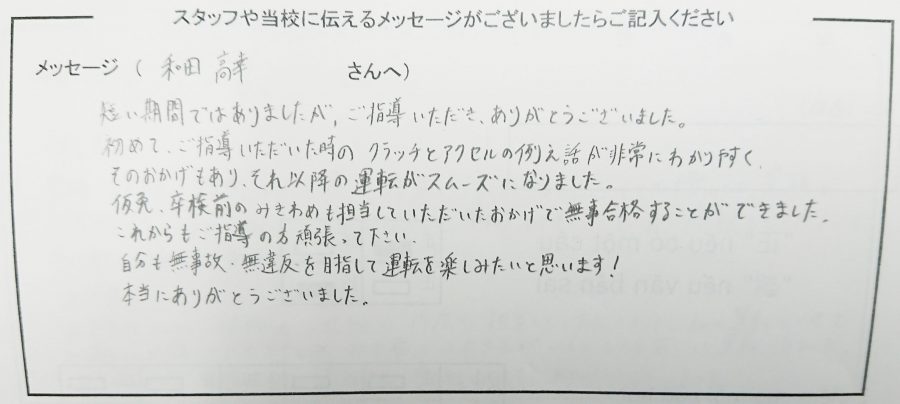 スタッフや当校に伝えるメッセージがございましたらご記入ください
メッセージ ( 和田 高幸 さんへ)
短い期間ではありましたが、ご指導いただき、ありがとうございました。
初めて、ご指導いただいた時の クラッチとアクセルの例え話が非常にわかりやすく、
そのおかげもあり、それ以降の運転がスムーズになりました。
仮免、卒検前のみきわめも担当していただいたおかげで無事合格することができました。
これからもご指導の方頑張って下さい。
自分も無事故・無違反を目指して運転を楽しみたいと思います!
本当にありがとうございました。
nếu có một câu
nếu văn bản sai